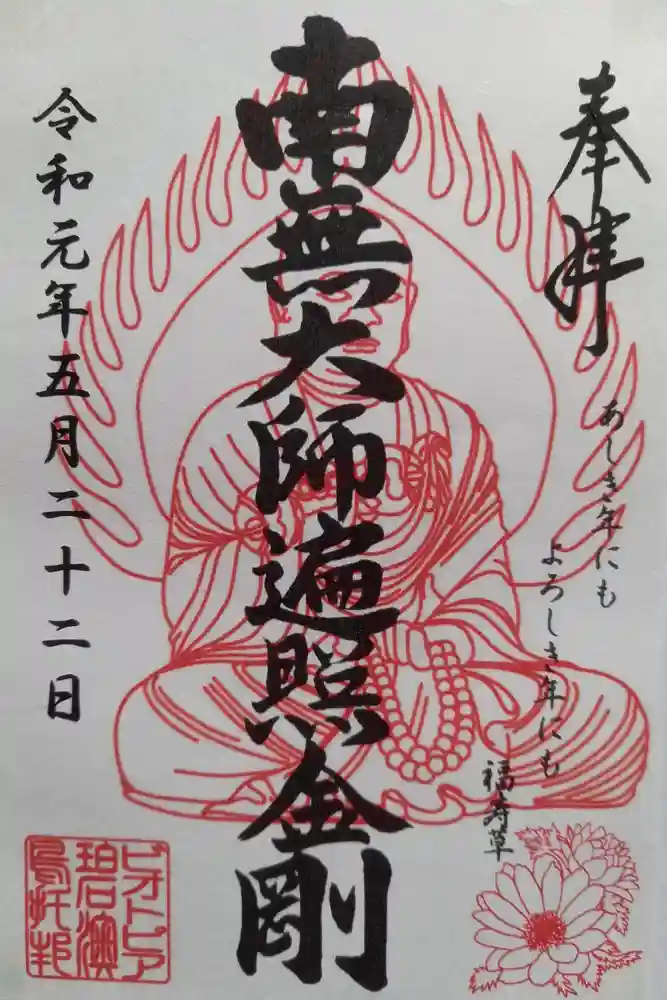 奉拝
あしき年にも
よろしき年にも
福寿草
南無大師遍照金剛
令和元年五月二十二日
ビオトピア
碧澳
烏托邦